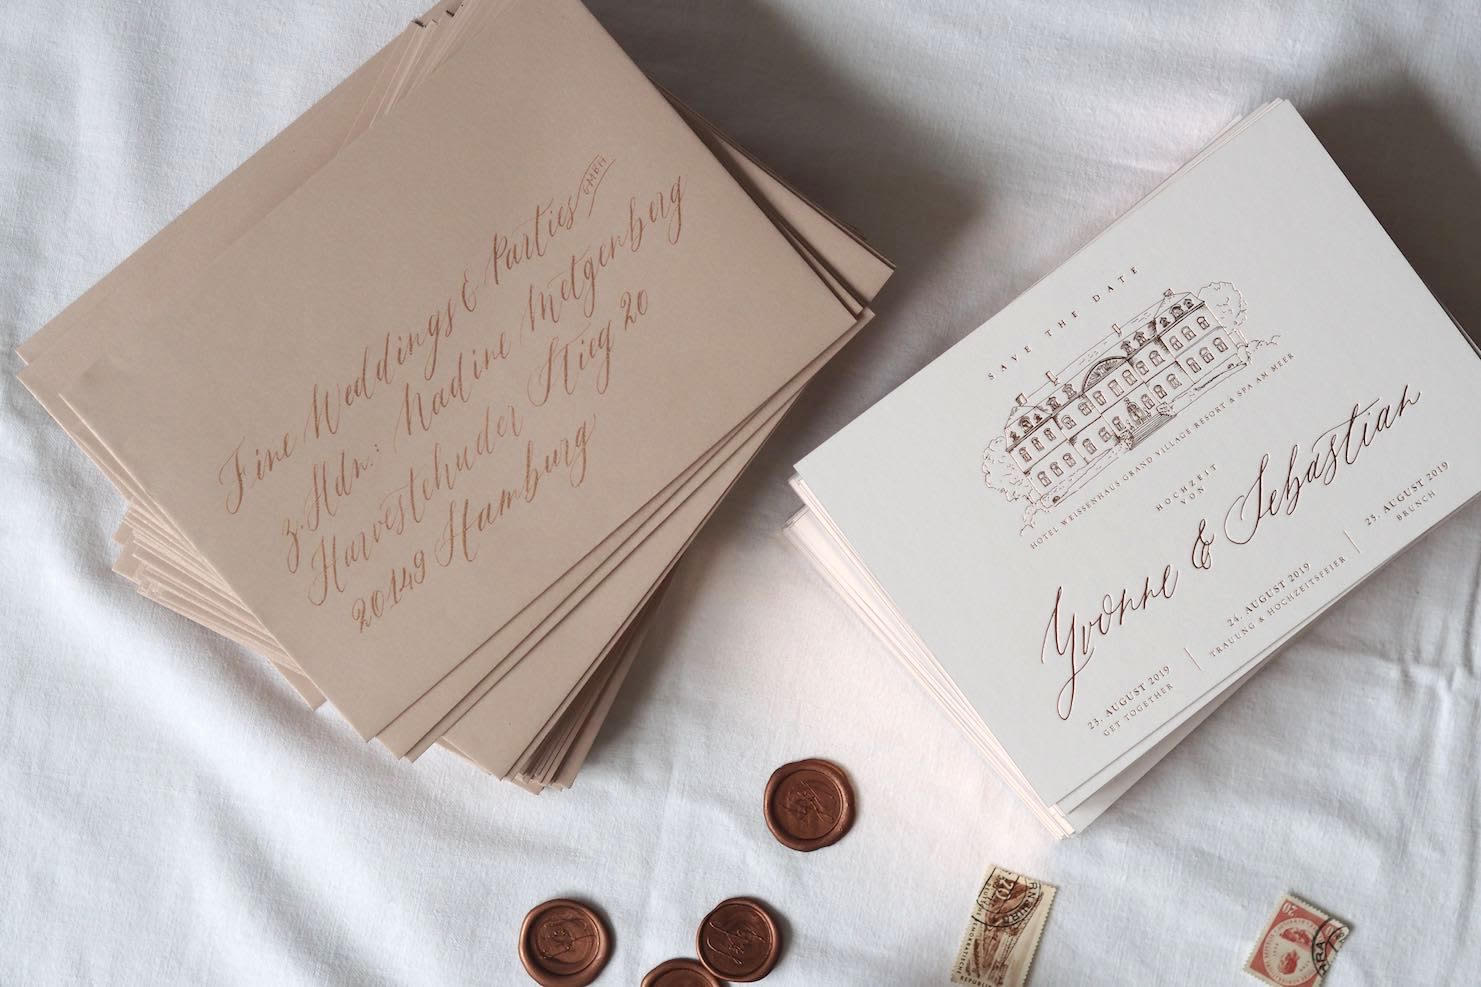 Fine Weddings & Parties GMBH
z. Hdn.: Nadine Metgenberg
Harvestehuder Stieg 20
20149 Hamburg
SAVE THE DATE
HOTEL WEISSENHAUS GRAND VILLAGE RESORT & SPA AM MEER
HOCHZEIT
VON
Yvonne & Sebastian
23. AUGUST 2019
GET TOGETHER
24. AUGUST 2019
TRAUUNG & HOCHZEITSFEIER
25. AUGUST 2019
BRUNCH
20
20